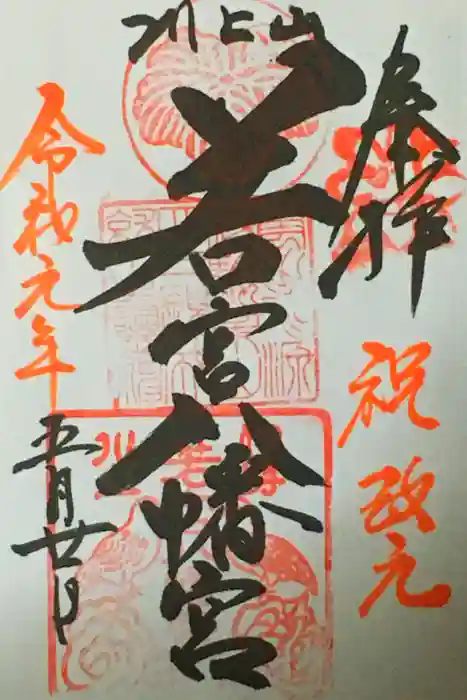 奉拝
祝改元
川上山
若宮八幡宮
令和元年
五月廿日